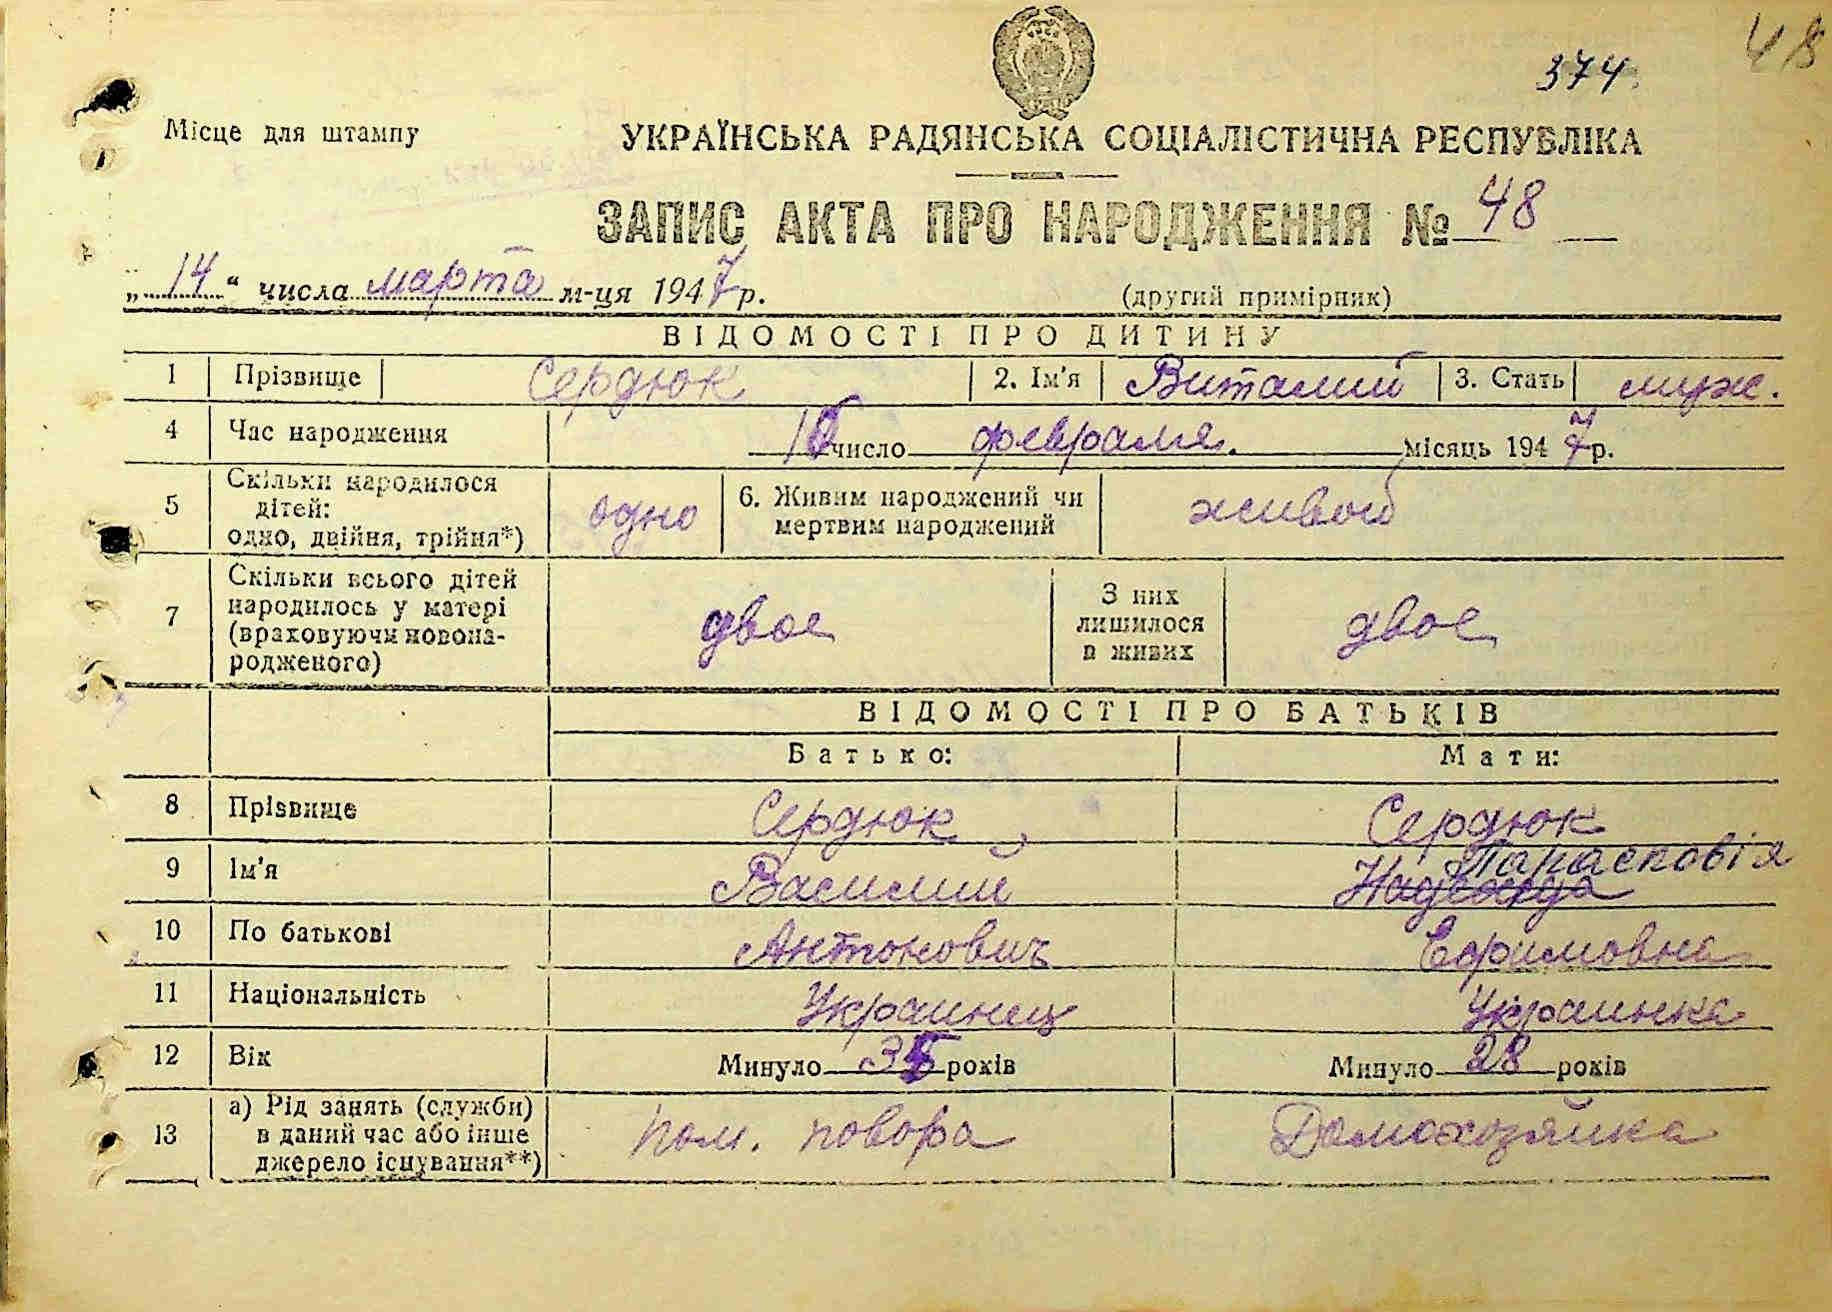 48
374.
Місце для штампу
УКРАЇНСЬКА РАДЯНСЬКА СОЦІАЛІСТИЧНА РЕСПУБЛІКА
ЗАПИС АКТА ПРО НАРОДЖЕННЯ № 48
„14“ числа марта м-ця 1947 р.
(другий примірник)
ВІДОМОСТІ ПРО ДИТИНУ
1 Прізвище Сердюк 2. Ім'я Виталий 3. Стать муж.
4 Час народження число февраля. місяць 1947 р.
5 Скільки народилося
дітей:
одно, двійня, трійня*)
одно
6. Живим народжений чи
мертвим народжений
живой
7 Скільки всього дітей
народилось у матері
(враховуючи новона-
родженого)
двое
З них
лишилося
в живих
двое
ВІДОМОСТІ ПРО БАТЬКІВ
Батько: Мати:
8 Прізвище Сердюк Сердюк
Парасковія
9 Ім'я Василий Надежда
10 По батькові Антонович Ефимовна
11 Національність Украинец Украинка
12 Вік Минуло 35 років Минуло 28 років
13 а) Рід занять (служби)
в даний час або інше
джерело існування**)
пом. повора Домохозяйка